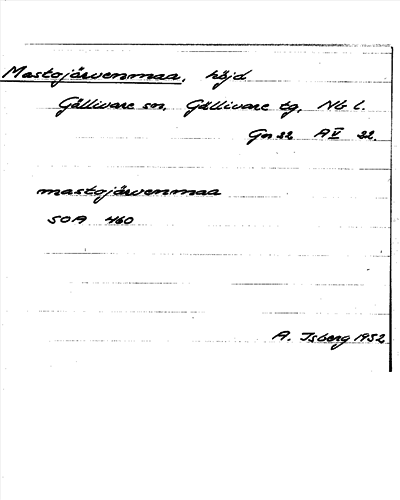 Mastojärvenmaa, höjd
Gällivare sn, Gällivare tg, Nb l.
Gm 22 A V 22.
mastojärvenmaa
SOA 460
A. Isberg 1952